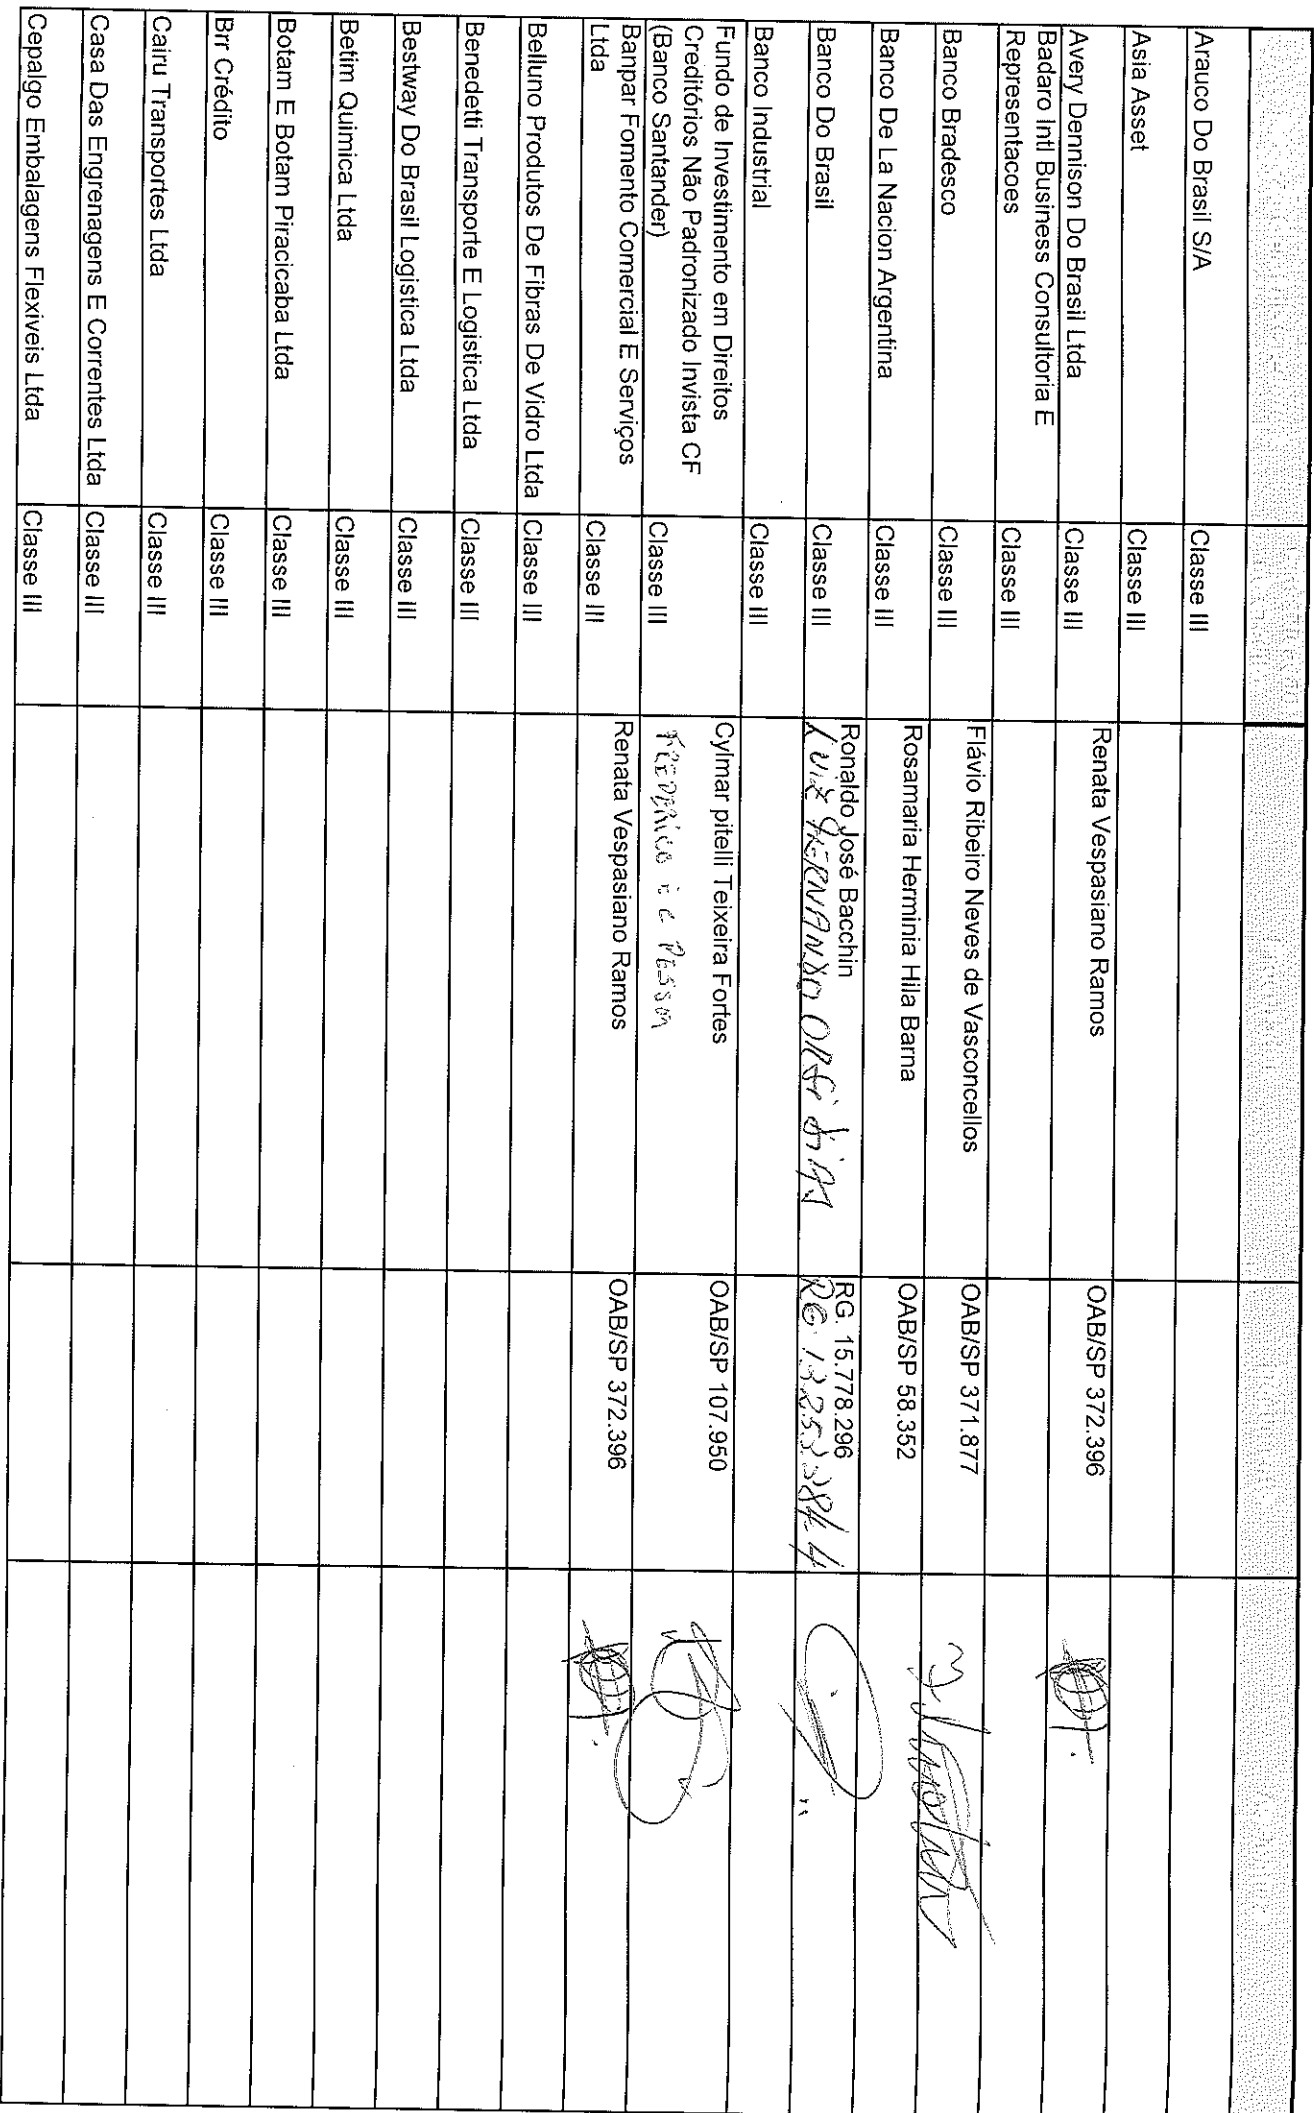 Arauco Do Brasil S/A Classe III
Asia Asset Classe III
Avery Dennison Do Brasil Ltda Classe III Renata Vespasiano Ramos OAB/SP 372.396
Badaro Intl Business Consultoria E
Representacoes Classe III
Banco Bradesco Classe III Flávio Ribeiro Neves de Vasconcellos OAB/SP 371.877
Banco De La Nacion Argentina Classe III Rosamaria Herminia Hila Barna OAB/SP 58.352
Banco Do Brasil Classe III Ronaldo José Bacchin RG. 15.778.296
LUIZ FERNANDO ORSI RG
Banco Industrial Classe III
Fundo de Investimento em Direitos
Creditórios Não Padronizado Invista CF Cylmar pitelli Teixeira Fortes OAB/SP 107.950
(Banco Santander) Classe III
Banpar Fomento Comercial E Serviços
Ltda Classe III Renata Vespasiano Ramos OAB/SP 372.396
Belluno Produtos De Fibras De Vidro Ltda Classe III
Benedetti Transporte E Logistica Ltda Classe III
Bestway Do Brasil Logistica Ltda Classe III
Betim Quimica Ltda Classe III
Botam E Botam Piracicaba Ltda Classe III
Brr Crédito Classe III
Cairu Transportes Ltda Classe III
Casa Das Engrenagens E Correntes Ltda Classe III
Cepalgo Embalagens Flexiveis Ltda Classe III